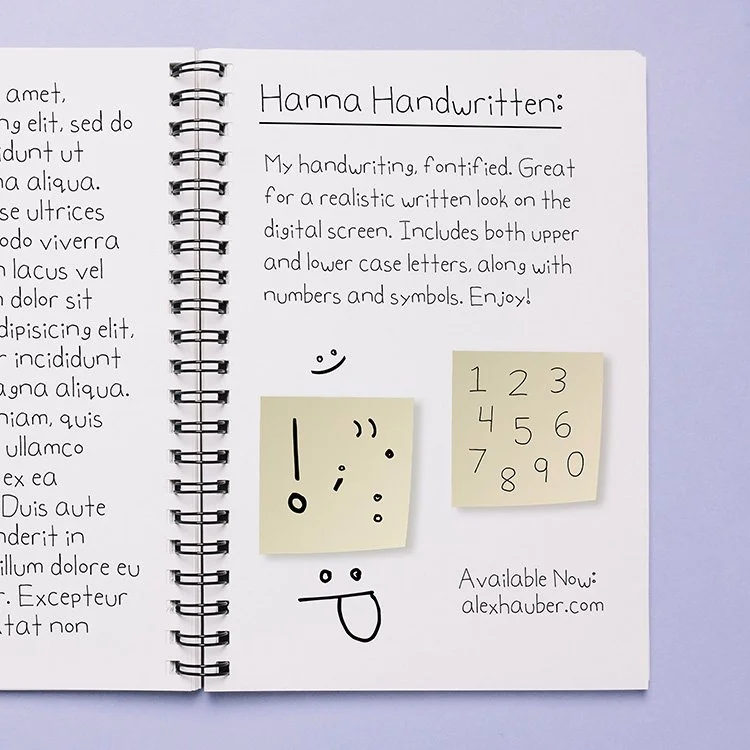 amet,
elit, sed do
ut
aliqua.
se ultrices
viverra
lacus vel
dolor sit
elit,
incididunt
aliqua.
quis
ullamco
ex ea
Duis aute
in
dolore eu
Excepteur
non
Hanna Handwritten:
My handwriting, fontified. Great
for a realistic written look on the
digital screen. Includes both upper
and lower case letters, along with
numbers and symbols. Enjoy!
! " . ; :
1 2 3
4 5 6
7 8 9 0
Available Now:
alexhauber.com